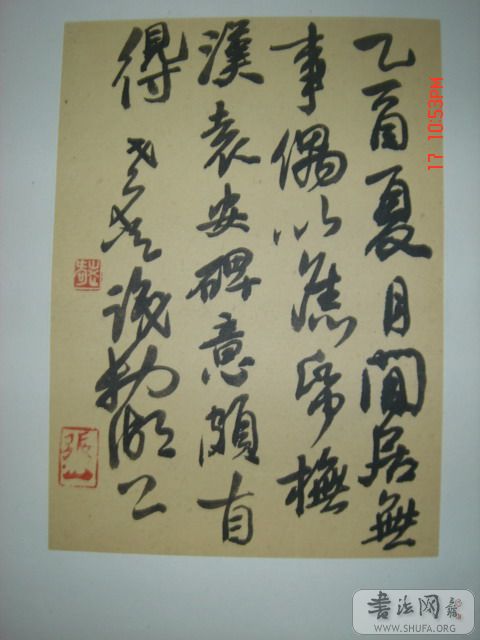 乙酉夏月閒居無
事偶以蕉葉撫
漢袁安碑意頗自
得 識於湖上
17 10:53PM
張
書法网
WWW.SHUFA.ORG